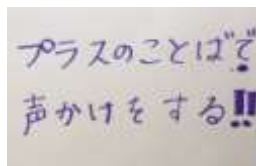 プラスのことばで
声かけをする!!